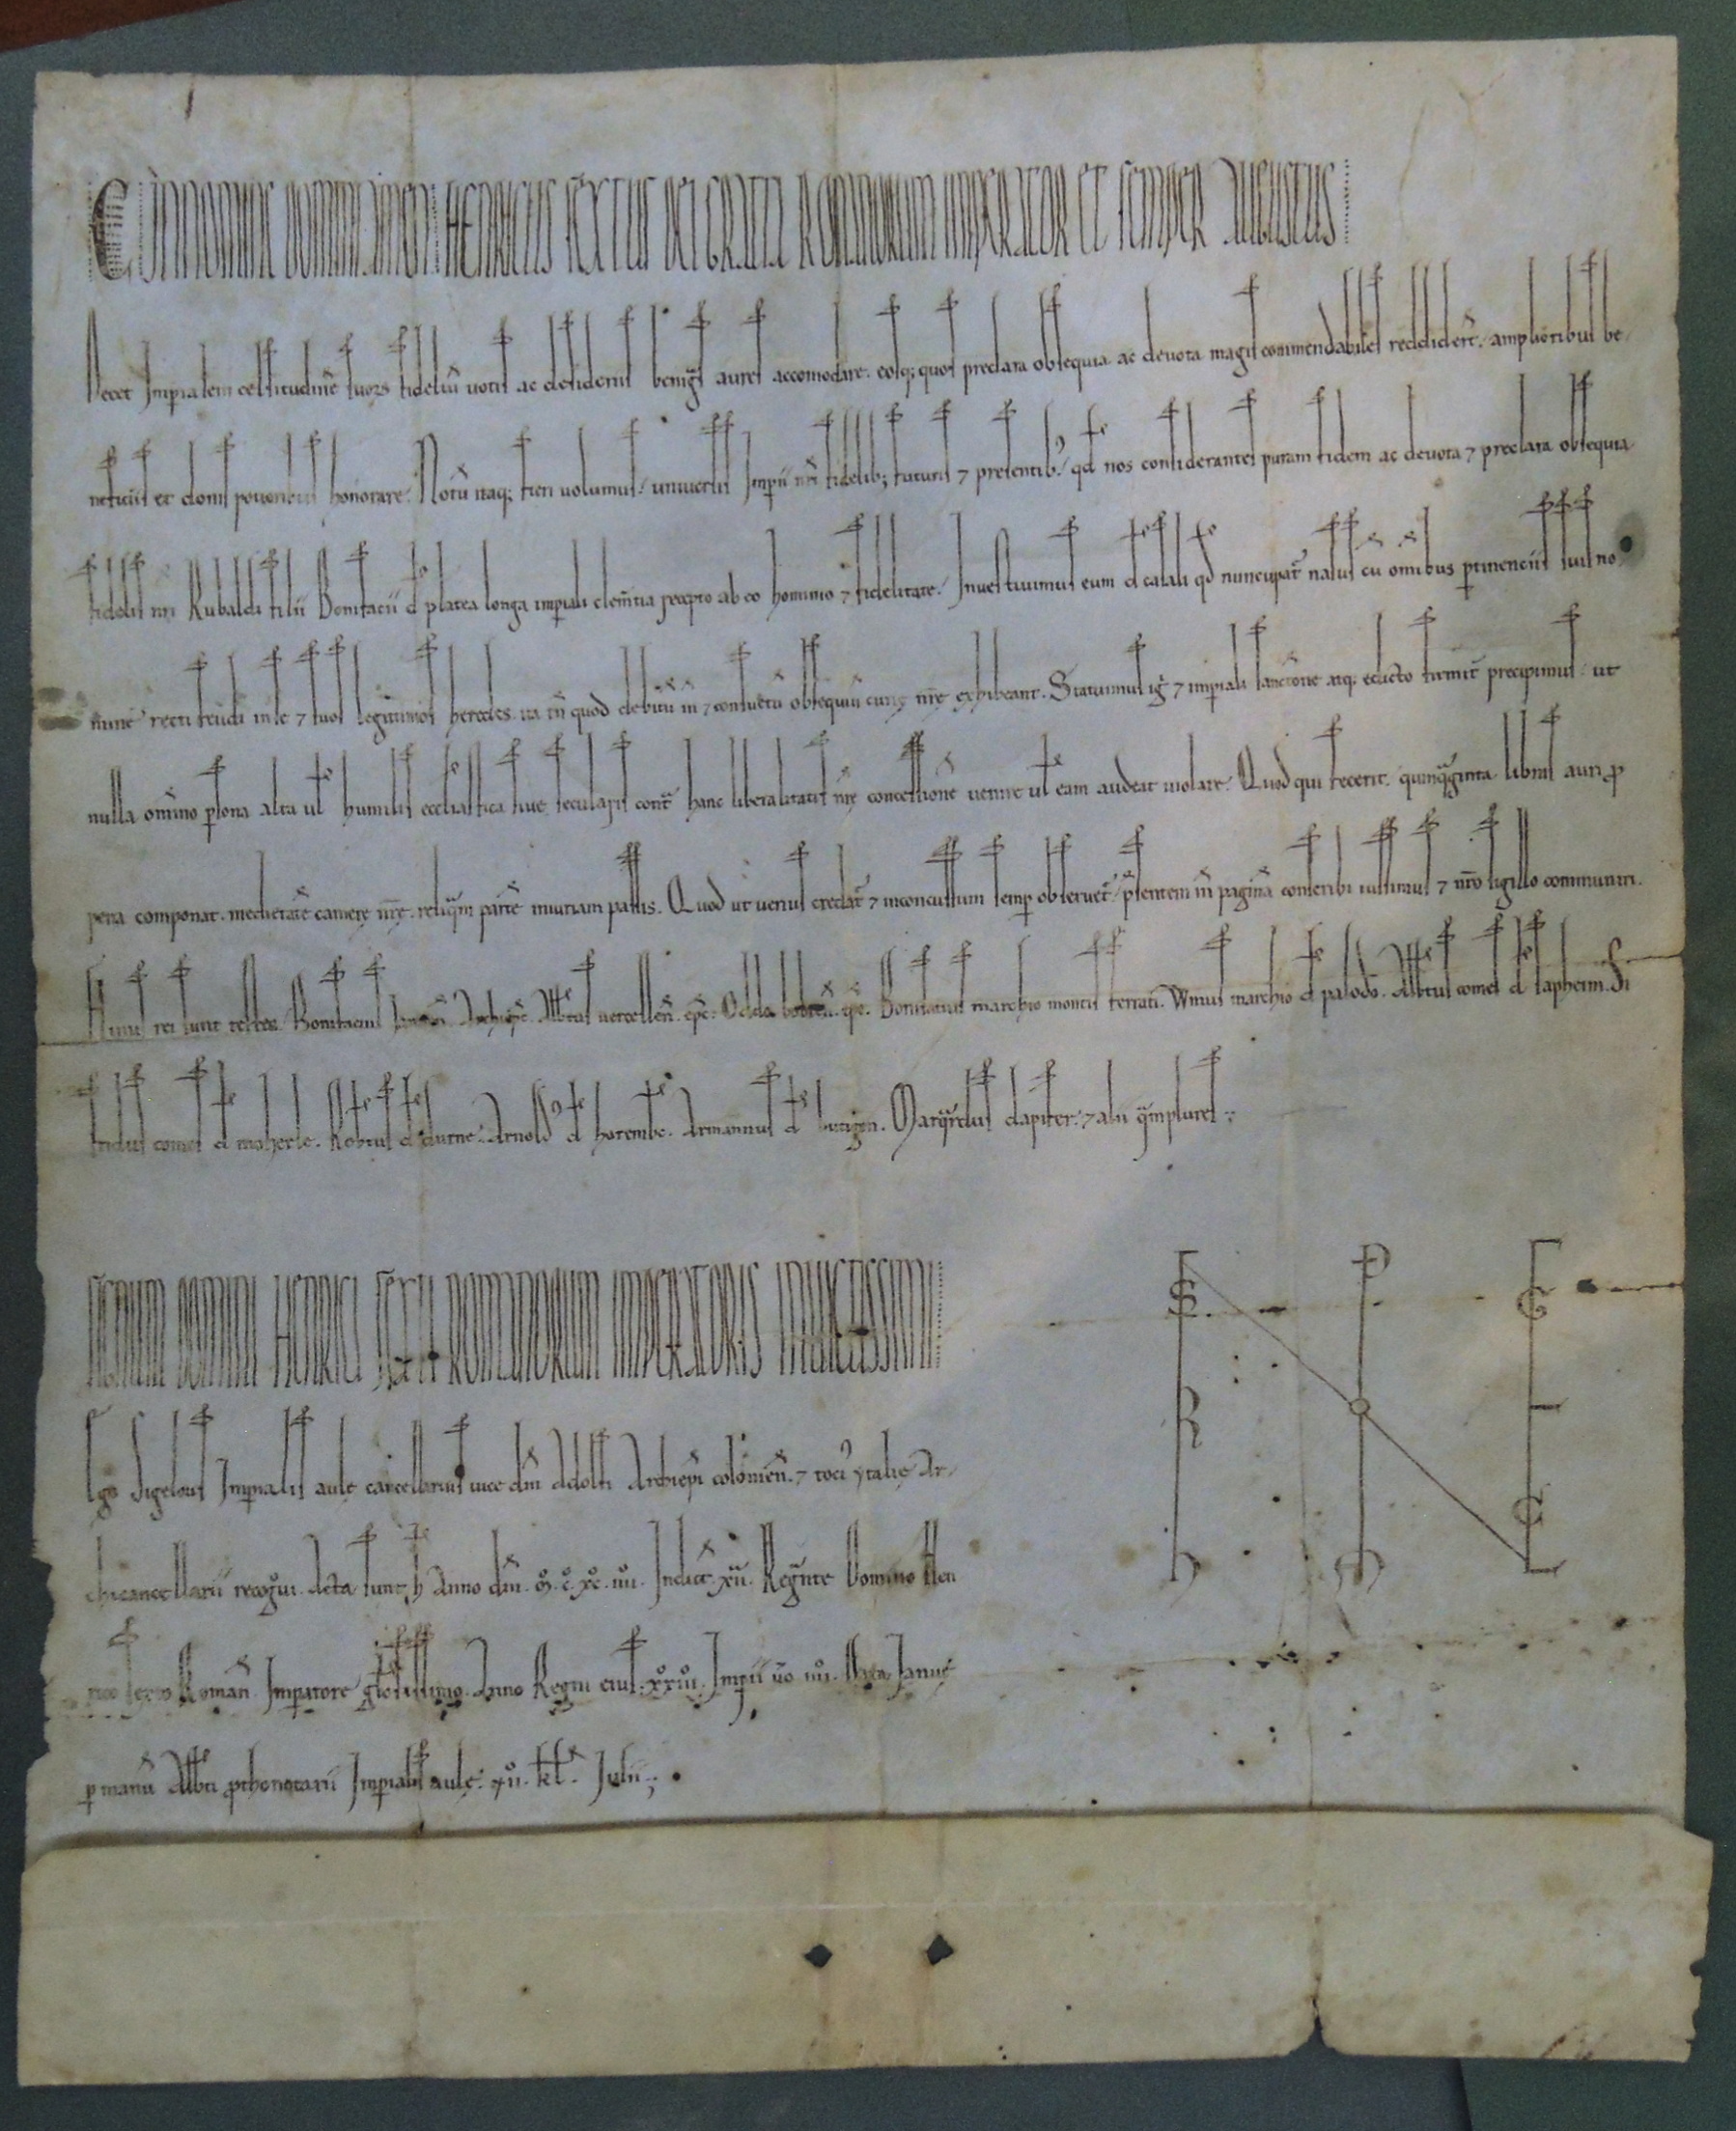 C IN NOMINE DOMINI AMEN HENRICUS SEXTUS DEI GRATIA ROMANORUM IMPERATOR ET SEMPER AUGUSTUS
Decet Imp̄ialem celsitudinē suoꝝ fideliū uotis ac desideriis benigͣs aures accomodare. eosq; quos preclara obsequia ac deuota magis commendabiles reddider̄t. amplioribus be/
neficiis et donis potioribus honorare. Notū itaq; fieri uolumus uniuersis Imp̄ii nr̄i fidelib; futuris ⁊ presentibꝰ. qd̄ nos considerantes puram fidem ac deuota ⁊ preclara obsequia
fidelis nr̄i Rubaldi filii Bonifacii d̄ platea longa imp̄iali clem̄tia recepto ab eo hominio ⁊ fidelitate. Inuestiuimus eum d̄ casali qd̄ nuncupat̄ nasus cū om̄ibus ꝑtinenciis suis no/
mine recti feudi in se ⁊ suos legitimos heredes. ita tn̄ quod debitū in ⁊ consuetū obsequiū curię nr̄ę exhibeant. Statuimus igͥ ⁊ imp̄iali sanctione atq; edicto firmit̄ precipimus ut
nulla om̄ino ꝑsona alta ul̄ humilis eccl̄iastica siue secularis contͣ hanc liberalitatis nr̄ę concessionē uenire ul̄ eam audeat uiolare. Quod qui fecerit. quinqͣginta libras auri ꝓ
pena componat. medietatē camerę nr̄ę. reliqͣm partē iniuriam passis. Quod ut uerius credat̄ ⁊ inconcussum semꝑ obseruet̄ p̄sentem in pagina conscribi iussimus ⁊ nr̄o sigillo communiri.
Huius rei sunt testes. Bonifacius Ianuen̄ Archiep̄c. Alb̄tus uercellen̄ ep̄c. Oddo bobien̄ ep̄c. Bonifacius marchio montis ferrati. Wmus marchio d̄ palodo. Alb̄tus comes d̄ spaheim. Si
fridus comes d̄ morherle. Rob̄tus d̄ durne. Arnoldꝰ d̄ horemb̄c. Armannus d̄ butigen. Marqͣrdus dapifer. ⁊ alii qͣmplures.
SIGNUM DOMINI HENRICI SEXTI ROMANORUM IMPERATORIS INUICTISSIMI
Ego Sigelous Imp̄ialis aulę cancellarius uice dn̄i Adolfi Archiep̄i colonien̄. ⁊ tociꝰ ytalię Ar/
chicancellarii recogͦui. Acta sunt h̄ Anno dn̄i. M̊. C̊. XC̊. IIII̊. Indict̄. XII. Regͣnte Domino Hen
rico sexto Roman̄ Imp̄atore glōsissimo. Anno Regni eius. XX̊IIII̊. Imp̄ii ūo IIII̊. Data Ianuę
ꝑ manū Alb̄ti ꝓthonotarii Imp̄ialis aulę. XII̊. kl̄. Iulii.